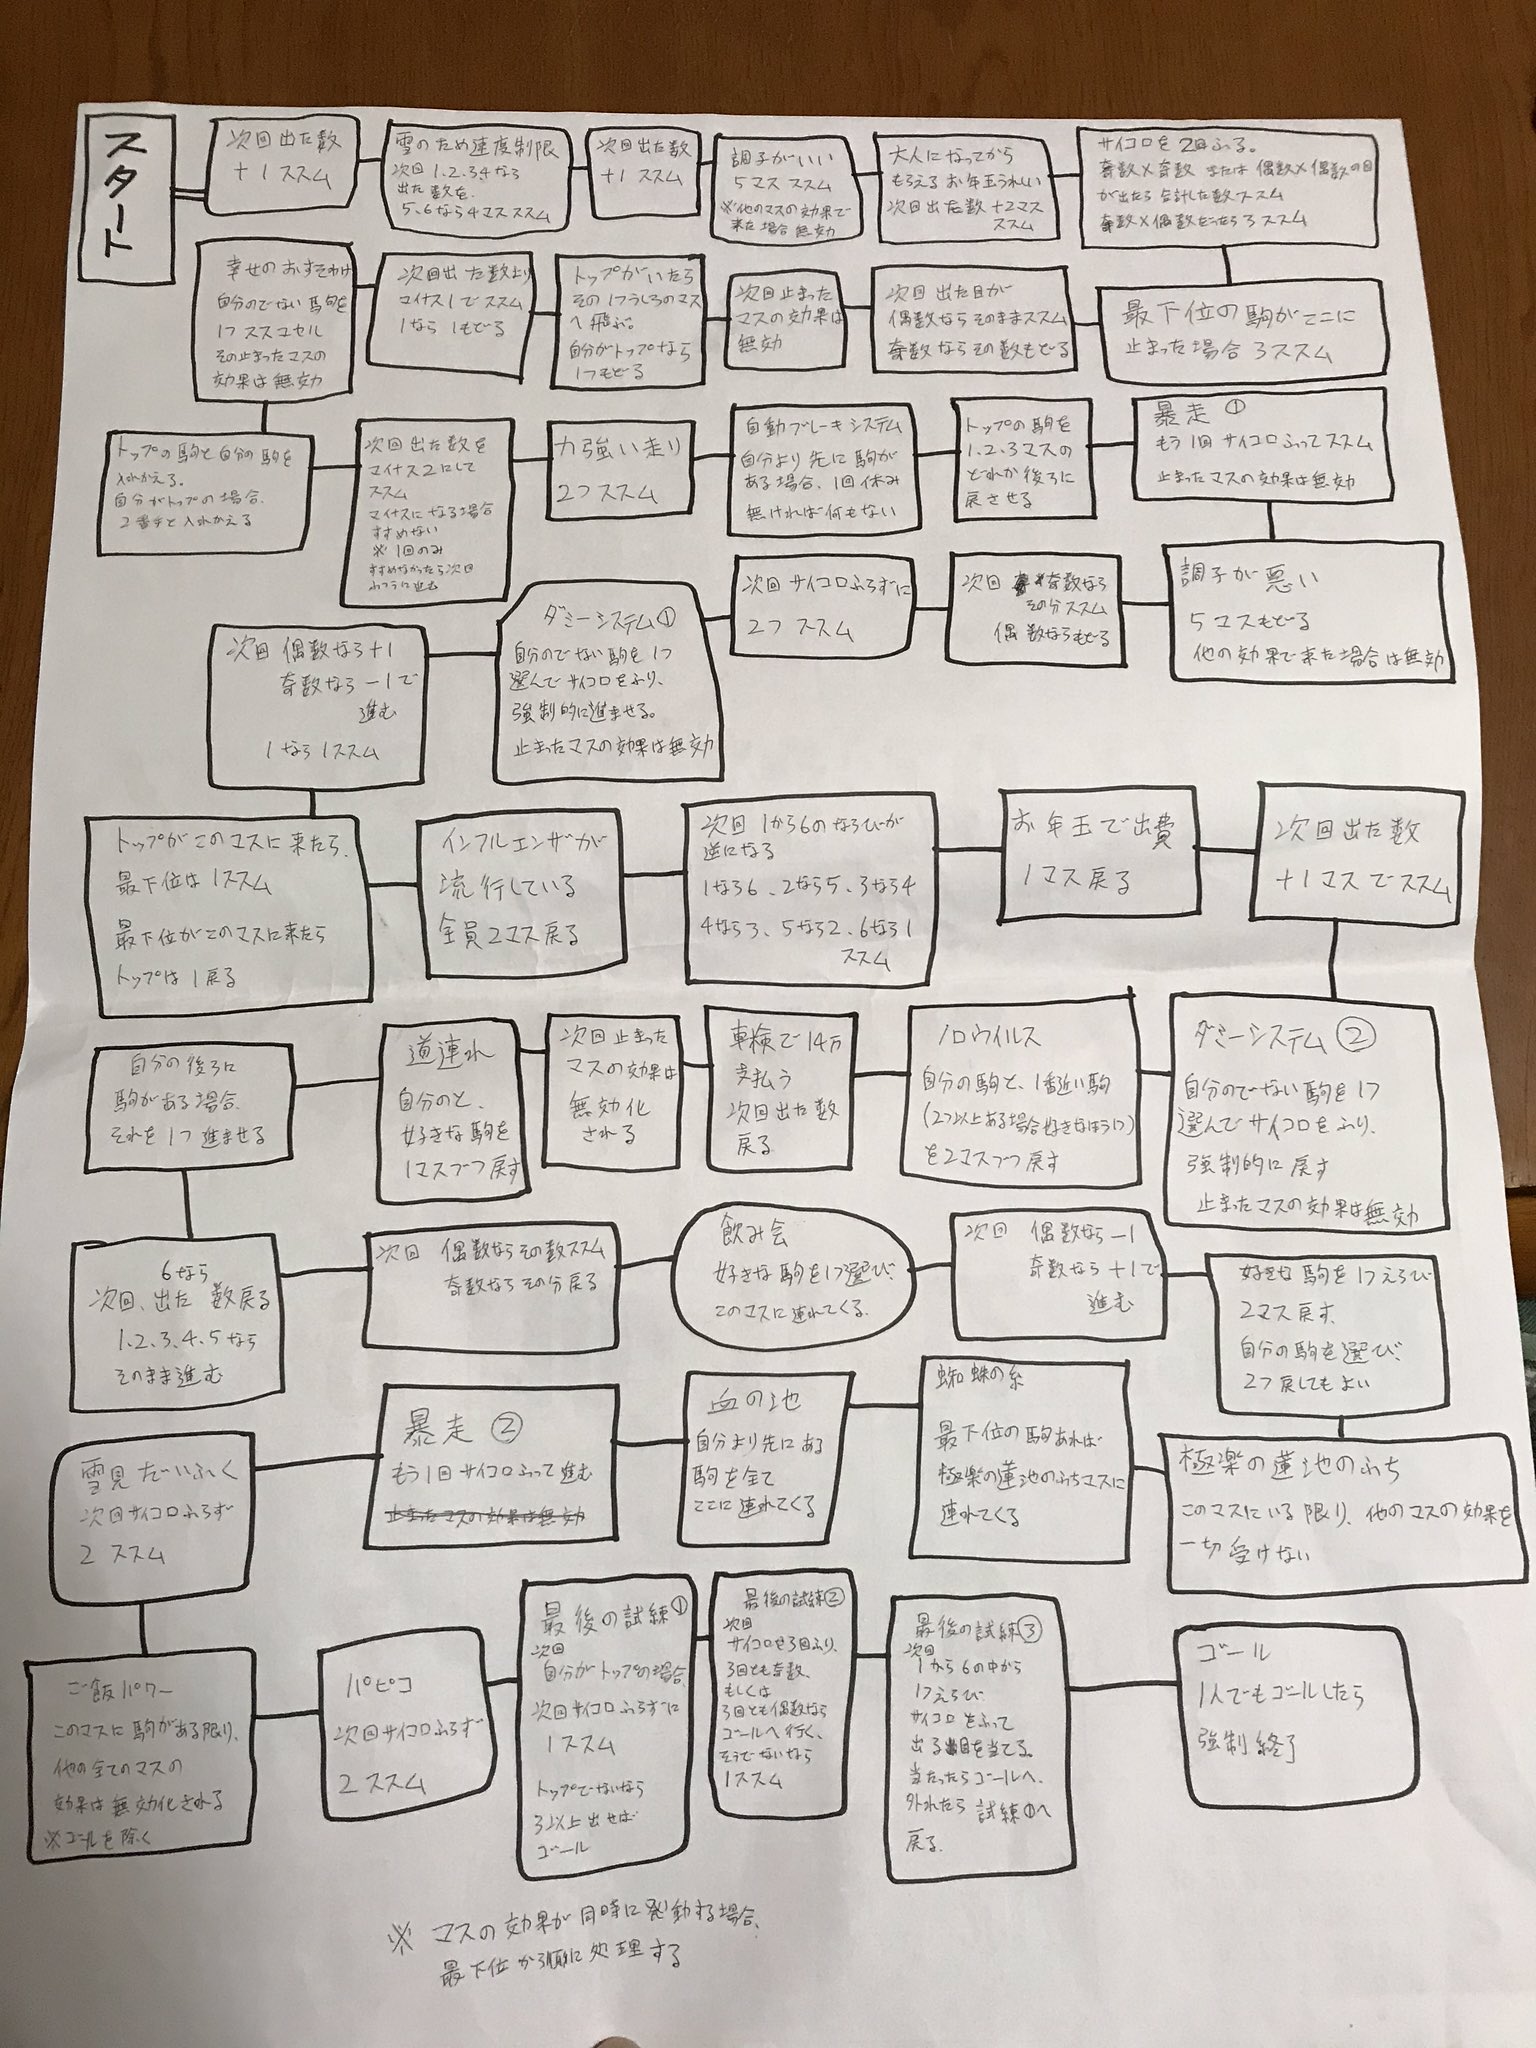 スタート
次回出た数
+1ススム
雪のため速度制限
次回 1.2.3.4なら
出た数を、
5.6なら4マスススム
次回出た数
+1ススム
調子がいい
5マスススム
※他のマスの効果で
来た場合無効
大人になってから
もらえるお年玉うれしい
次回出た数+2マス
ススム
サイコロを2回ふる。
奇数×奇数 または 偶数×偶数の目
が出たら合計した数ススム
奇数×偶数だったら3ススム
最下位の駒がここに
止まった場合3ススム
次回出た目が
偶数ならそのままススム
奇数ならその数もどる
次回止まった
マスの効果は
無効
トップがいたら
その1つうしろのマス
へ飛ぶ。
自分がトップなら
1つもどる
次回出た数より
マイナス1でススム
1なら1もどる
幸せのおすそわけ
自分のでない駒を
1つススマセル
その止まったマスの
効果は無効
トップの駒と自分の駒を
入れかえる。
自分がトップの場合、
2番手と入れかえる
次回出た数を
マイナス2にして
ススム
マイナスになる場合
すすめない
※1回のみ
すすめなかったら次回
ふつうに進む
力強い走り
2つススム
自動ブレーキシステム
自分より先に駒が
ある場合、1回休み
無ければ何もない
トップの駒を
1.2.3マスの
どれか後ろに
戻させる
暴走①
もう1回サイコロふってススム
止まったマスの効果は無効
調子が悪い
5マスもどる
他の効果で来た場合は無効
次回 奇数なら
その分ススム
偶数ならもどる
次回サイコロふらずに
2つススム
ダミーシステム①
自分のでない駒を1つ
選んでサイコロをふり、
強制的に進ませる。
止まったマスの効果は無効
次回 偶数なら+1
奇数なら-1で
進む
1なら1ススム
トップがこのマスに来たら、
最下位は1ススム
最下位がこのマスに来たら
トップは1戻る
インフルエンザが
流行している
全員2マス戻る
次回1から6のならびが
逆になる
1なら6、2なら5、3なら4
4なら3、5なら2、6なら1
ススム
お年玉で出費
1マス戻る
次回出た数
+1マスでススム
ダミーシステム②
自分のでない駒を1つ
選んでサイコロをふり、
強制的に戻す
止まったマスの効果は無効
ノロウイルス
自分の駒と、1番近い駒
(2つ以上ある場合好きなほう1つ)
を2マスづつ戻す
車検で14万
支払う
次回出た数
戻る
次回止まった
マスの効果は
無効化
される
道連れ
自分のと、
好きな駒を
1マスづつ戻す
自分の後ろに
駒がある場合、
それを1つ進ませる
6なら
次回、出た数戻る
1.2.3.4.5なら
そのまま進む
次回 偶数ならその数ススム
奇数ならその分戻る
飲み会
好きな駒を1つ選び、
このマスに連れてくる。
次回 偶数なら-1
奇数なら+1で
進む
好きな駒を1つえらび
2マス戻す。
自分の駒を選び、
2つ戻してもよい
極楽の蓮池のふち
このマスにいる限り、他のマスの効果を
一切受けない
蜘蛛の糸
最下位の駒あれば
極楽の蓮池のふちマスに
連れてくる
血の池
自分より先にある
駒を全て
ここに連れてくる
暴走②
もう1回サイコロふって進む
止まったマスの効果は無効
雪見だいふく
次回サイコロふらず
2ススム
ご飯パワー
このマスに駒がある限り、
他の全てのマスの
効果は無効化される
※ゴールを除く
パピコ
次回サイコロふらず
2ススム
最後の試練①
次回
自分がトップの場合、
次回サイコロふらずに
1ススム
トップでないなら
3以上出せば
ゴール
最後の試練②
次回
サイコロを3回ふり、
3回とも奇数、
もしくは
3回とも偶数なら
ゴールへ行く、
そうでないなら
1ススム
最後の試練③
次回
1から6の中から
1つえらび
サイコロをふって
出る目を当てる。
当たったらゴールへ、
外れたら試練①へ
戻る。
ゴール
1人でもゴールしたら
強制終了
※ マスの効果が同時に発動する場合、
最下位から順に処理する